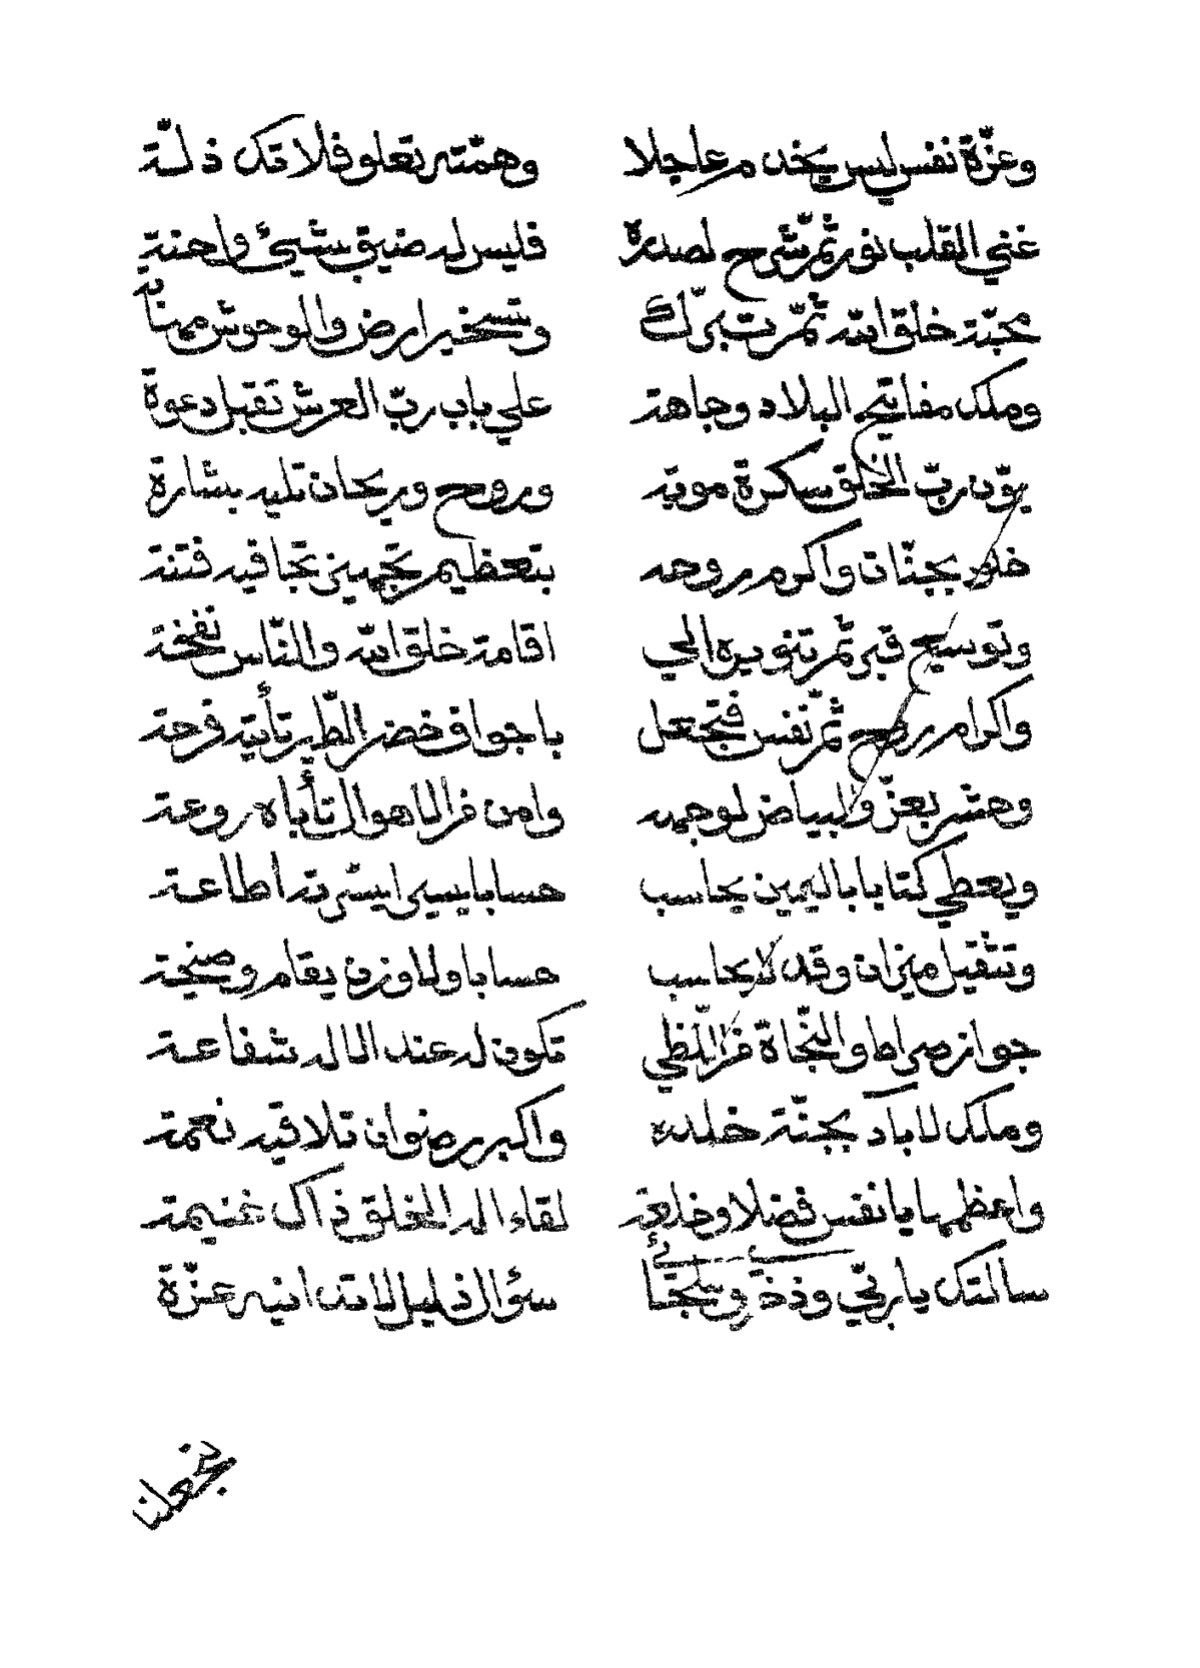 وعزّة نفس ليس يخدم عاجلا وهمّته تعلو فلا تك ذلّة
غني القلب نور ثمّ شرح لصدره فليس له ضيق بشيئ واحنة
محبّة خلق الله ثمّ تبرّك وتسخير ارض والوحوش
وملك مفاتيح البلاد وجاهة علي باب ربّ العرش تقبل دعوة
يهوّن ربّ الخلق سكرة موته وروح وريحان تليه بشارة
خلود بجنّات واكرم روحه بتعظيم تجهيز تجافيه فتنة
وتوسيع قبر ثمّ تنويره الي اقامة خلق الله والنّاس نفخة
واكرام روح ثمّ نفس فتجعل باجواف خضر الطّير تأتيه فرحة
وحشر بعزّ والبياض لوجهه وامن من الاهوال تأباه روعة
ويعطي كتابا باليمين يحاسب حسابا يسيرا يسّرته اطاعة
وتثقيل ميزان وقد لا يحاسب حسابا ولا وزن يقام وصنجة
جواز صراط والنّجاة من اللّظي تكون له عند الاله شفاعة
وملك لاباد بجنّة خلده واكبر رضوان تلاقيه نعمة
واعظمها يا نفس فضلا وخلعة لقاء اله الخلق ذاك غنيمة
سالتك يا ربّي سؤال ذليل لا تدانيه عزّة